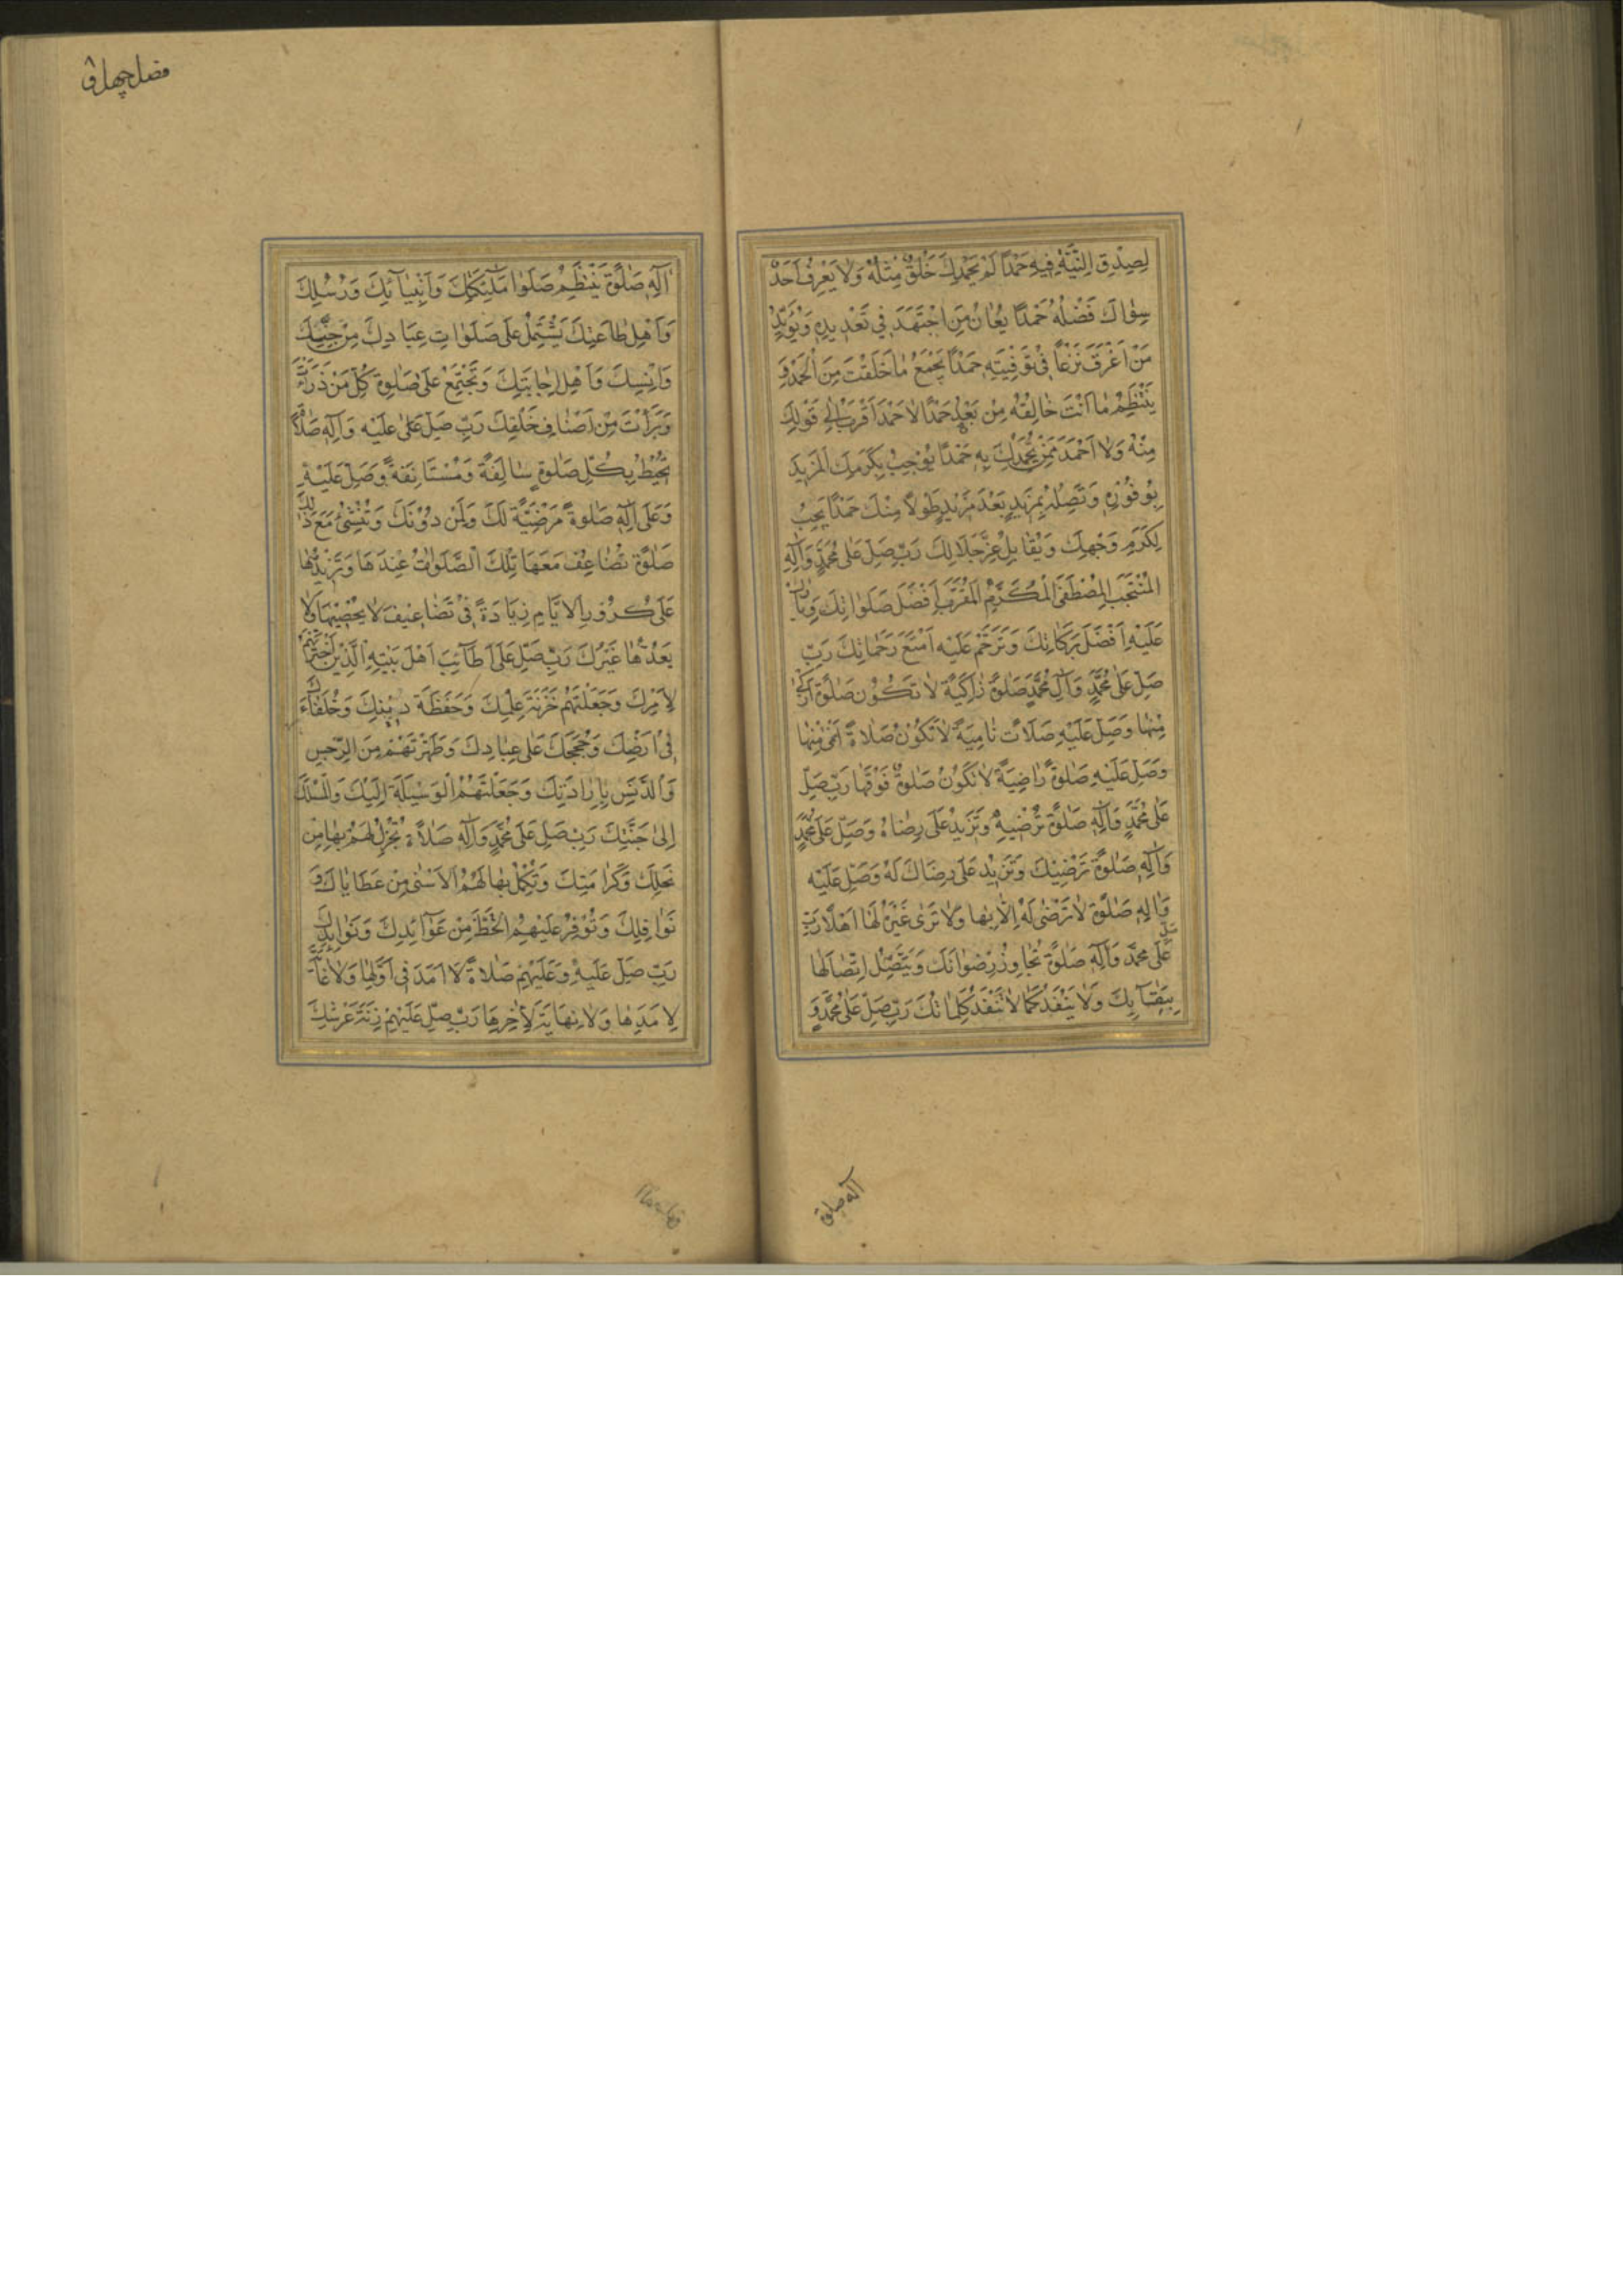 لِصِدْقِ النِّيَّةِ فِيهِ حَمْدًا لَمْ يَحْمَدْكَ خَلْقٌ مِثْلَهُ وَلَا يَعْرِفُ أَحَدٌ
سِوَاكَ فَضْلَهُ حَمْدًا يُعَانُ مَنِ اجْتَهَدَ فِي تَعْدِيدِهِ وَيُؤَيَّدُ
مَنْ أَغْرَقَ نَزْعًا فِي تَوْفِيَتِهِ حَمْدًا يَجْمَعُ مَا خَلَقْتَ مِنَ الْحَمْدِ وَ
يَنْتَظِمُ مَا أَنْتَ خَالِقُهُ مِنْ بَعْدُ حَمْدًا لَا حَمْدَ أَقْرَبُ إِلَى قَوْلِكَ
مِنْهُ وَلَا أَحْمَدَ مِمَّنْ يَحْمَدُكَ بِهِ حَمْدًا يُوْجِبُ بِكَرَمِكَ الْمَزِيدَ
بِوُفُوْرِهِ وَتَصِلُهُ بِمَزِيدٍ بَعْدَ مَزِيدٍ طَوْلًا مِنْكَ حَمْدًا يَجِبُ
لِكَرَمِ وَجْهِكَ وَيُقَابِلُ عِزَّ جَلَالِكَ رَبِّ صَلِّ عَلَى مُحَمَّدٍ وَآلِهِ
الْمُنْتَجَبِ الْمُصْطَفَى الْمُكَرَّمِ الْمُقَرَّبِ أَفْضَلَ صَلَوَاتِكَ وَبَارِكْ
عَلَيْهِ أَفْضَلَ بَرَكَاتِكَ وَتَرَحَّمْ عَلَيْهِ أَمْتَعَ رَحَمَاتِكَ رَبِّ
صَلِّ عَلَى مُحَمَّدٍ وَآلِ مُحَمَّدٍ صَلٰوةً زَاكِيَةً لَا تَكُوْنُ صَلٰوةٌ أَزْكَى
مِنْهَا وَصَلِّ عَلَيْهِ صَلَاتً نَامِيَةً لَا تَكُوْنُ صَلَاةً أَنْمَى مِنْهَا
وَصَلِّ عَلَيْهِ صَلٰوةً رَاضِيَةً لَا تَكُوْنُ صَلٰوةٌ فَوْقَهَا رَبِّ صَلِّ
عَلَى مُحَمَّدٍ وَآلِهِ صَلٰوةً تُرْضِيهِ وَتَزِيدُ عَلَى رِضَاهُ وَصَلِّ عَلَى مُحَمَّدٍ
وَآلِهِ صَلٰوةً تَرْضِيْكَ وَتَزِيدُ عَلَى رِضَاكَ لَهُ وَصَلِّ عَلَيْهِ
وَآلِهِ صَلٰوةً لَا تَرْضَى لَهُ إِلَّا بِهَا وَلَا تَرَى غَيْرَهُ لَهَا أَهْلًا رَبِّ
صَلِّ عَلَى مُحَمَّد وَآلِهِ صَلٰوةً تُجَاوِزُ رِضْوَانَكَ وَيَتَّصِلُ اتِّصَالُهَا
بِبَقَآئِكَ وَلَا يَنْفَدُ كَمَا لَا تَنْفَدُ كَلِمَاتُكَ رَبِّ صَلِّ عَلَى مُحَمَّدٍ وَ
آله صلوة
فضل چهل و
آلِهِ صَلٰوةً يَنْتَظِمُ صَلَوَا مَلٰئِكَتِكَ وَأَنْبِيَآئِكَ وَرُسُلِكَ
وَأَهْلِ طَاعَتِكَ يَشْتَمِلُ عَلَى صَلَوَاتِ عِبَادِكَ مِنْ جِنِّكَ
وَإِنْسِكَ وَأَهْلِ إِجَابَتِكَ وَتَجْتَمِعُ عَلَى صَلٰوةِ كُلِّ مَنْ ذَرَأْتَ
وَبَرَأْتَ مِنْ أَصْنَافِ خَلْقِكَ رَبِّ صَلِّ عَلَى عَلَيْهِ وَآلِهِ صَلٰوةً
تُحِيْطُ بِكُلِّ صَلٰوةٍ سَالِفَةٍ وَمُسْتَانِفَةٍ وَصَلِّ عَلَيْهِ
وَعَلَى آلِهِ صَلٰوةً مَرْضِيَّةً لَكَ وَلِمَنْ دُوْنَكَ وَتُنْشِئُ مَعَ ذٰلِكَ
صَلٰوةً تُضَاعِفُ مَعَهَا تِلْكَ الصَّلَوَاتُ عِنْدَهَا وَتَزِيدُهَا
عَلَى كُرُوْرِ الْأَيَّامِ زِيَادَةً فِي تَضَاعِيفَ لَا يُحْصِيْهَا وَلَا
يَعُدُّهَا غَيْرُكَ رَبِّ صَلِّ عَلَى أَطَآئِبِ أَهْلِ بَيْتِهِ الَّذِيْنَ اخْتَرْتَهُمْ
لِأَمْرِكَ وَجَعَلْتَهُمْ خَزَنَةَ عِلْمِكَ وَحَفَظَةَ دِيْنِكَ وَخُلَفَآءَكَ
فِي أَرْضِكَ وَحُجَجَكَ عَلَى عِبَادِكَ وَطَهَّرْتَهُمْ مِنَ الرِّجْسِ
وَالدَّنَسِ بِإِرَادَتِكَ وَجَعَلْتَهُمُ الْوَسِيْلَةَ إِلَيْكَ وَالْمَسْلَكَ
إِلَى جَنَّتِكَ رَبِّ صَلِّ عَلَى مُحَمَّدٍ وَآلِهِ صَلَاةً تُجْزِلُ لَهُمْ بِهَا مِنْ
نِحَلِكَ وَكَرَامَتِكَ وَتُكْمِلُ بِهَا لَهُمُ الْأَسْنَى مِنْ عَطَايَاكَ وَ
نَوَافِلِكَ وَتُوَفِّرُ عَلَيْهِمُ الْحَظَّ مِنْ عَوَآئِدِكَ وَفَوَايِدِكَ
رَبِّ صَلِّ عَلَيْهِ وَعَلَيْهِمْ صَلَاةً لَا أَمَدَ فِي أَوَّلِهَا وَلَا غَايَةَ
لِأَمَدِهَا وَلَا نِهَايَةَ لِأَخِرِهَا رَبِّ صَلِّ عَلَيْهِمْ زِنَةَ عَرْشِكَ